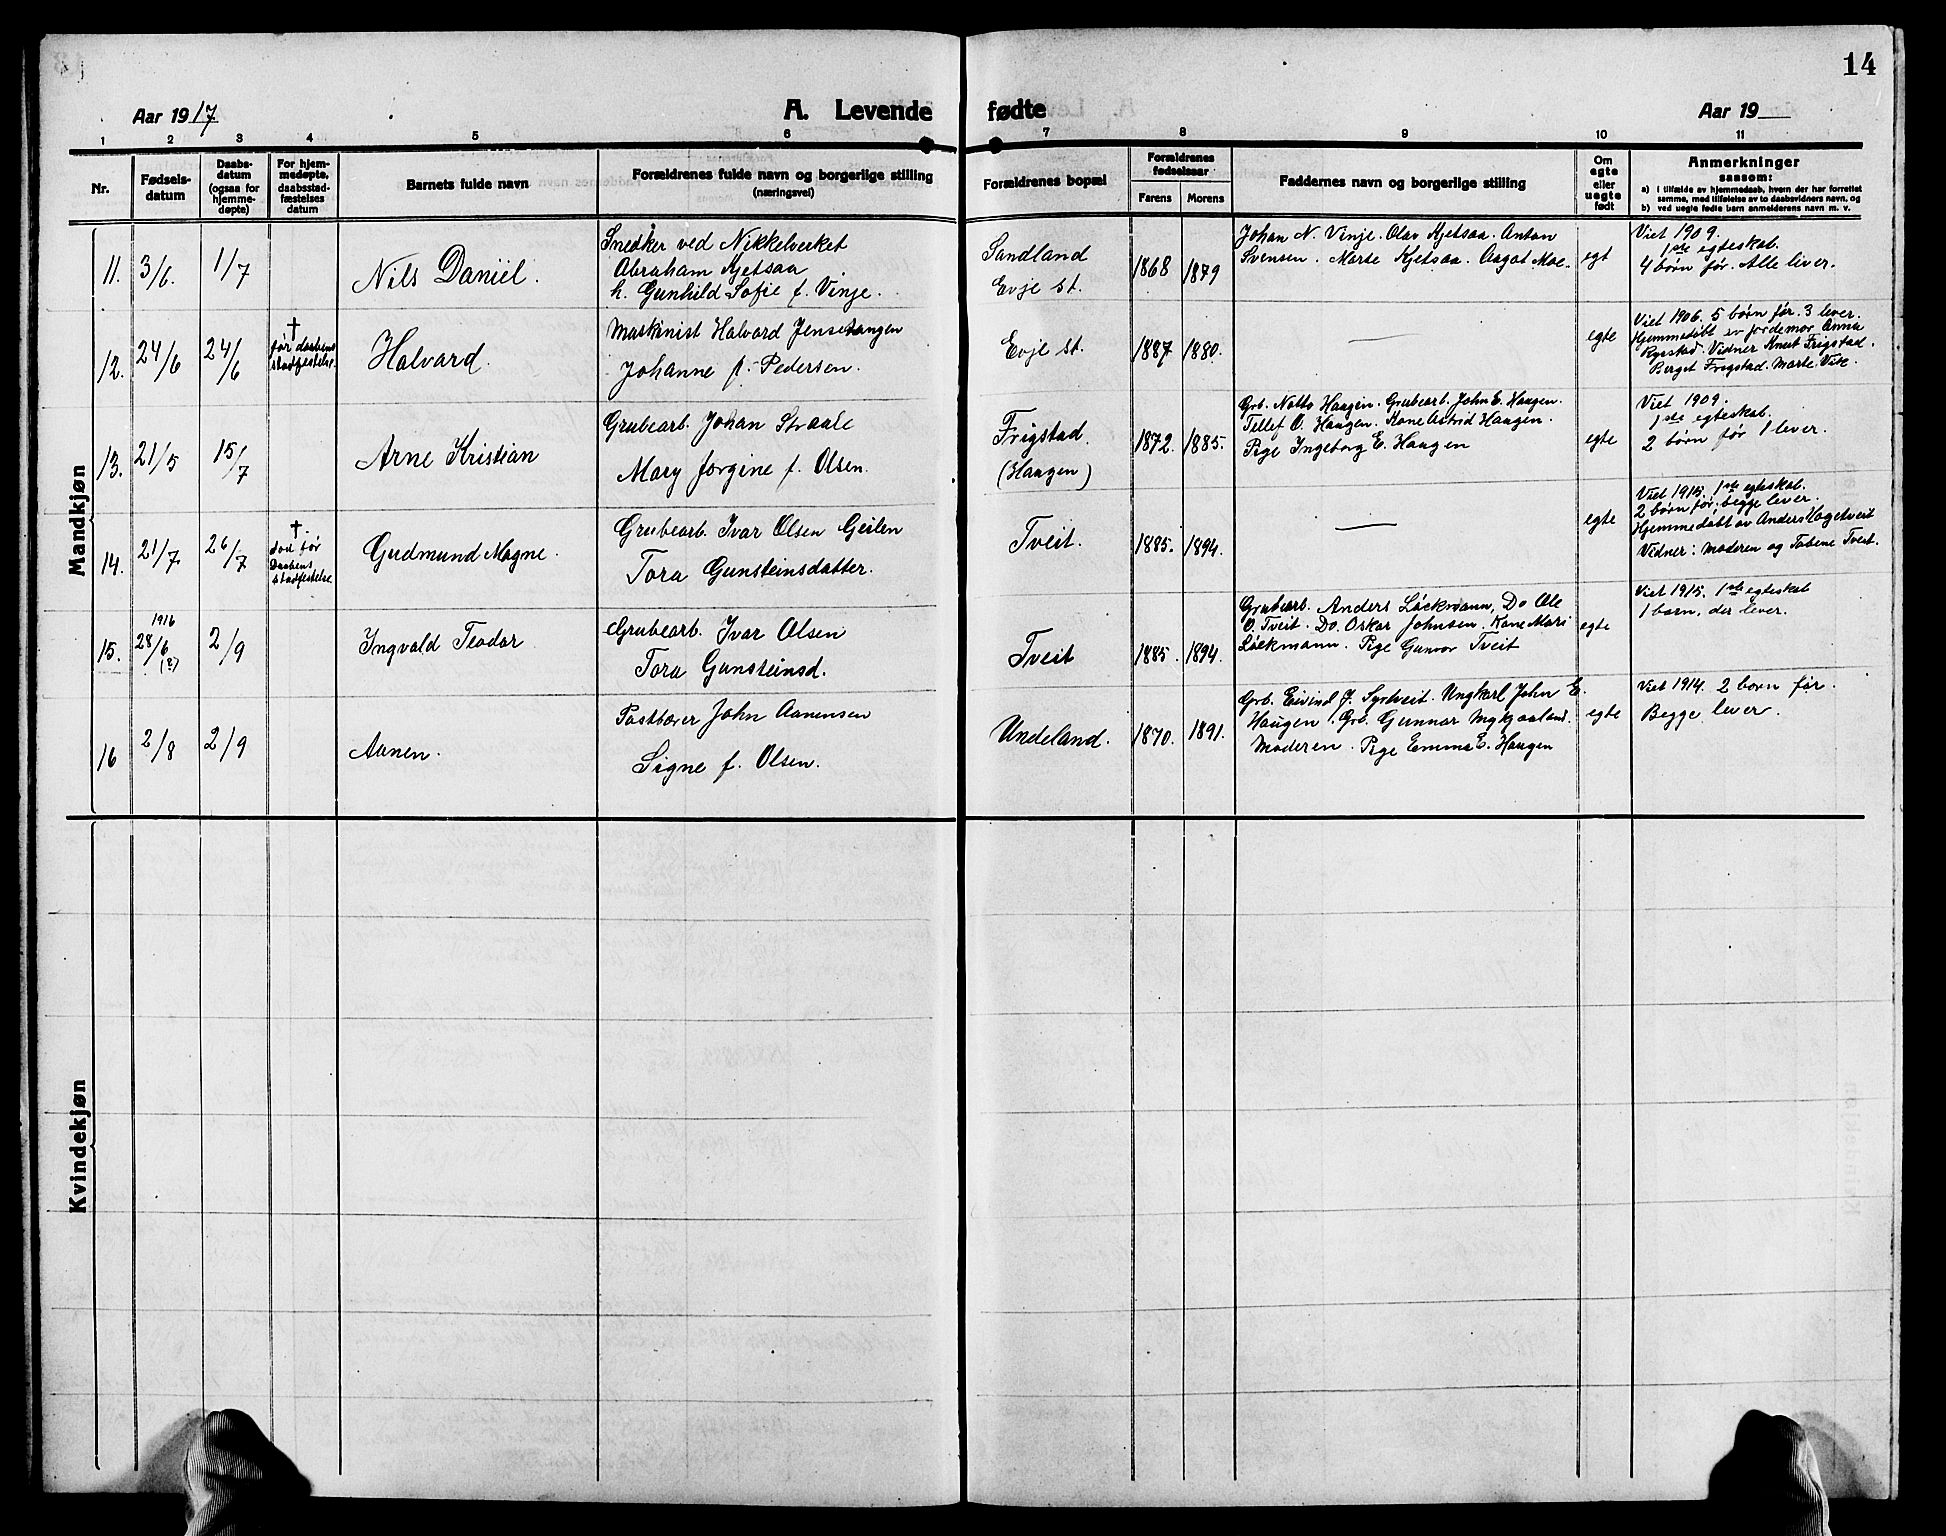 14
Aar 1917
A. Levende fødte
Aar 19
1 2 3 4 5 6 7 8 9 10 11
Nr.
Fødsels-
datum
Daabs-
datum
(ogsaa for
hjemme-
døpte)
For hjem-
medøpte,
daabsstad-
fæstelses
datum
Barnets fulde navn
Forældrenes fulde navn og borgerlige stilling
(næringsvei)
Forældrenes bopæl
Forældrenes
fødselsaar
Farens Morens
Faddernes navn og borgerlige stilling
Om
egte
eller
uegte
født
Anmerkninger
saasom:
a) i tilfælde av hjemmedaab, hvem der har forrettet
samme, med tilføielse av to daabsvidners navn, og
b) ved uegte fødte barn anmelderens navn m. v.
Mandkjøn
11. 3/6. 1/7
Nils Daniel.
Snedker ved Nikkelverket
Abraham Kjetsaa
h. Gunhild Sofie f. Vinje.
Sandland
Evje st.
1868 1879
Johan N. Vinje. Olav Kjetsaa. Anton
Svensen. Marte Kjetsaa. Aagot Moe.
egt
Viet 1909.
1ste egteskab.
4 børn før. Alle lever.
12. 24/6 24/6
†
før daabens
stadfestelse.
Halvard.
Maskinist Halvard Jensehaugen
Johanne f. Pedersen.
Evje st.
1887 1880.
—
egte
Viet 1906. 5 børn før. 3 lever.
Hjemmedøbt av jordemor Anna
Rysstad. Vidner Knut Frigstad.
Berget Frigstad. Marte Vik.
13. 21/5 15/7
Arne Kristian
Grubearb. Johan Straale
Mary Jørgine f. Olsen.
Frigstad.
(Haugen)
1872. 1885.
Grb. Notto Haugen. Grubearb. John E. Haugen.
Tellef O. Haugen. Kone Astrid Haugen.
Pige Ingeborg E. Haugen
egte
Viet 1909.
1ste egteskab.
2 børn før 1 lever.
14. 21/7. 26/7
†
død før
Daabens
stadfestelse
Gudmund Magne.
Grubearb. Ivar Olsen Geilen
Tora Gunsteinsdatter.
Tveit.
1885. 1894.
—
egte
Viet 1915. 1ste egteskab.
2 børn før, begge lever.
Hjemmedøbt av Anders
Vidner: moderen og Tobene Tveit.
15. 1916
28/6
(?)
2/9
Ingvald Teodor
Grubearb. Ivar Olsen
Tora Gunsteinsd.
Tveit
1885. 1894.
Grubearb. Anders Løckmann, Do Ole
O. Tveit. Do. Oskar Johnsen. Kone Mari
Løckmann. Pige Gunvor Tveit
egte
Viet 1915. 1ste egteskab
1 barn, der lever.
16 2/8 2/9
Aanen.
Postbærer John Aanensen
Signe f. Olsen.
Undeland.
1870. 1891.
Grb. Eivind J. Syrtveit. Ungkarl John E.
Haugen. Grb. Gunnar Mykjaaland.
Moderen. Pige Emma E. Haugen
egte
Viet 1914. 2 børn før.
Begge lever.
Kvindekjøn